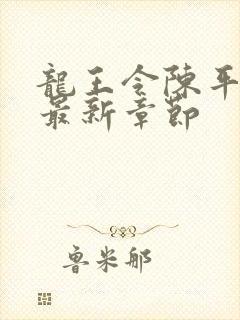 龍王令陳平
最新章節
魯米那